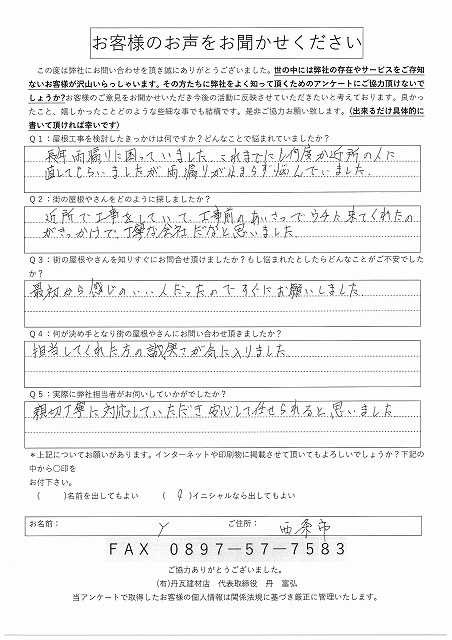 お客様のお声をお聞かせください
この度は弊社にお問い合わせを頂き誠にありがとうございました。世の中には弊社の存在やサービスをご存知
ないお客様が沢山いらっしゃいます。その方たちに弊社をよく知って頂くためのアンケートにご協力頂けないで
しょうか?お客様のご意見をお聞かせいただき今後の活動に反映させていただきたいと考えております。良かっ
たこと、嬉しかったことどのような些細な事でも結構です。是非ご協力お願い致します。(出来るだけ具体的に
書いて頂ければ幸いです)
Q1:屋根工事を検討したきっかけは何ですか?どんなことで悩まれていましたか?
長年雨漏りに困っていました これまでにも何度か近所の人に
直してもらいましたが雨漏りが止まらず悩んでいました.
Q2:街の屋根やさんをどのように探しましたか?
近所で工事をしていて、工事前のあいさつでウチに来てくれたの
がきっかけで、丁寧な会社だなと思いました
Q3:街の屋根やさんを知りすぐにお問合せ頂けましたか?もし悩まれたとしたらどんなことがご不安でした
か?
最初から感じのいい人だったのですぐにお願いしました
Q4:何が決め手となり街の屋根やさんにお問い合わせ頂きましたか?
担当してくれた方の誠実さが気に入りました
Q5:実際に弊社担当者がお伺いしていかがでしたか?
親切丁寧に対応していただき安心して任せられると思いました
*上記についてお願いがあります。インターネットや印刷物に掲載させて頂いてもよろしいでしょうか?下記の
中から○印を
お付下さい。
( )名前を出してもよい ( )イニシャルなら出してもよい
お名前: Y ご住所: 西条市
FAX 0897-57-7583
ご協力ありがとうございました。
(有)丹瓦建材店 代表取締役 丹 富弘
当アンケートで取得したお客様の個人情報は関係法規に基づき厳正に管理いたします。